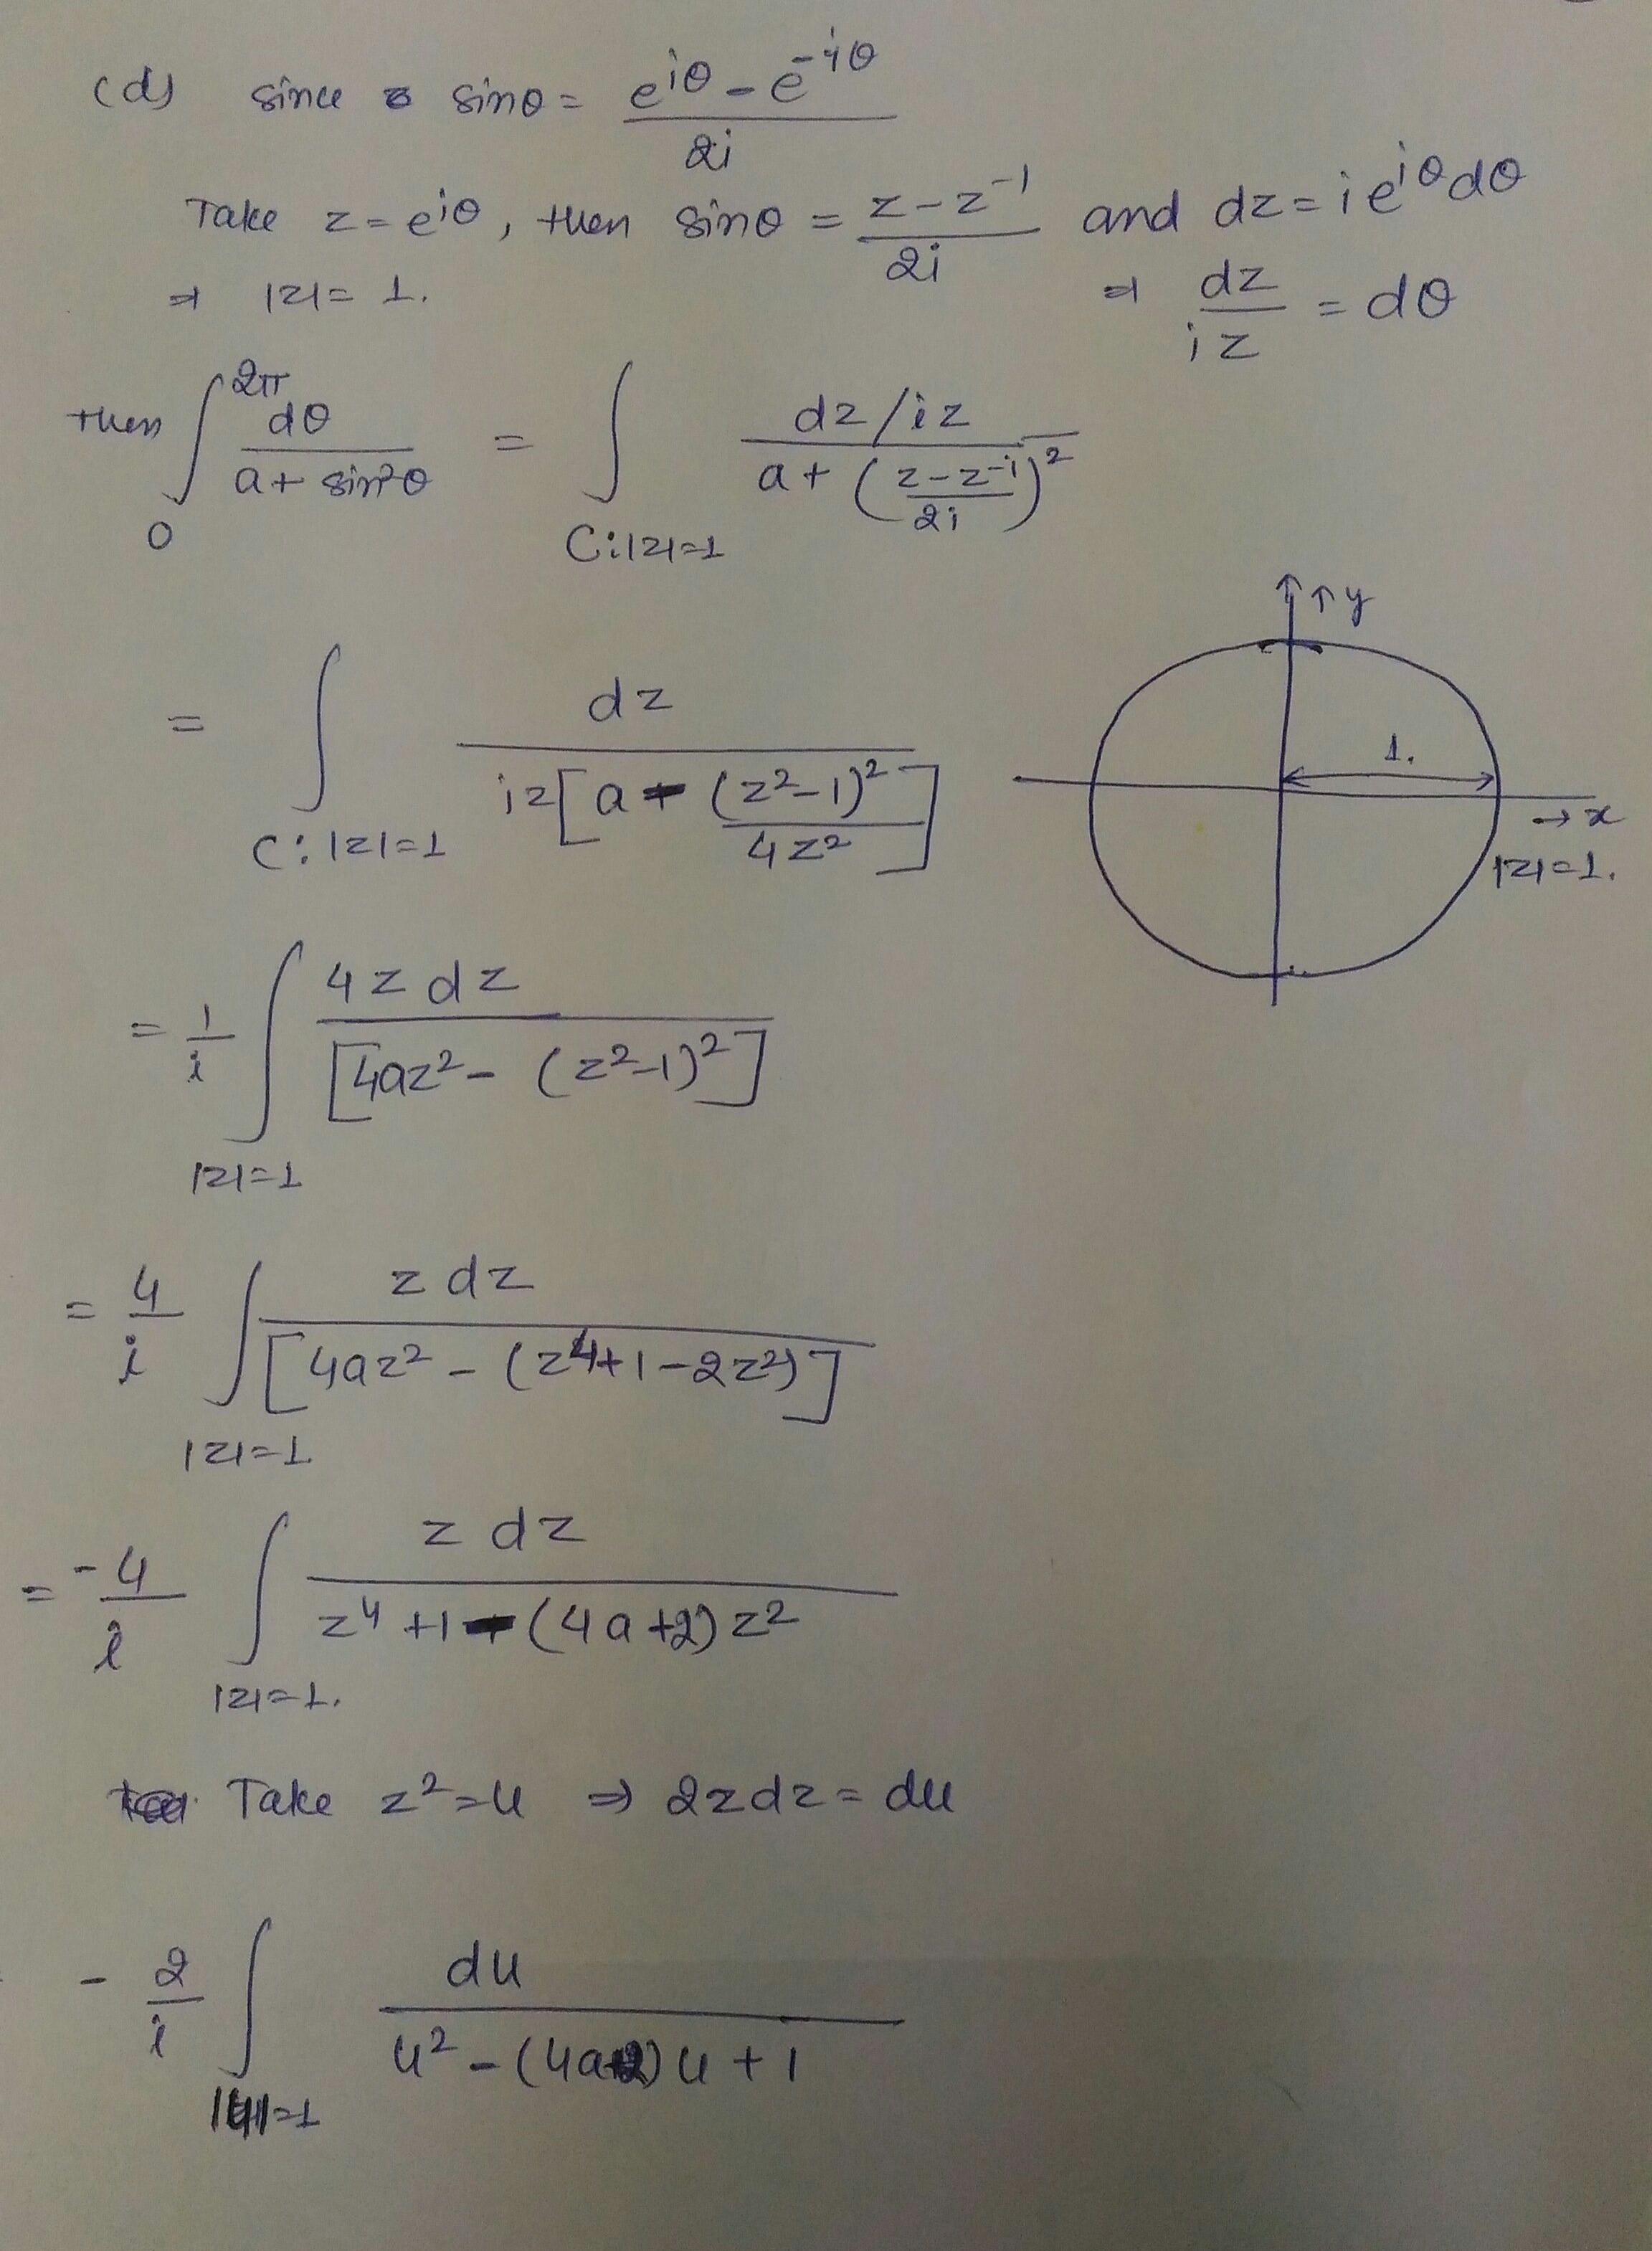 (d) since sinθ = (e^{iθ} - e^{-iθ})/2i
Take z = e^{iθ}, then sinθ = (z - z^{-1})/2i and dz = i e^{iθ} dθ
⇒ |z| = 1. ⇒ dz/iz = dθ
then ∫_0^{2π} dθ/(a + sin²θ) = ∫_{C:|z|=1} (dz/iz)/(a + ((z - z^{-1})/2i)²)
↑ y
= ∫_{C:|z|=1} dz/(iz[a - (z²-1)²/4z²])
1.
→ x
|z|=1.
= 1/i ∫_{|z|=1} 4z dz/[4az² - (z²-1)²]
= 4/i ∫_{|z|=1} z dz/[4az² - (z⁴+1-2z²)]
= -4/i ∫_{|z|=1.} z dz/(z⁴+1-(4a+2)z²)
Take z² = u ⇒ 2zdz = du
- 2/i ∫_{|u|=1} du/(u² - (4a+2)u + 1)